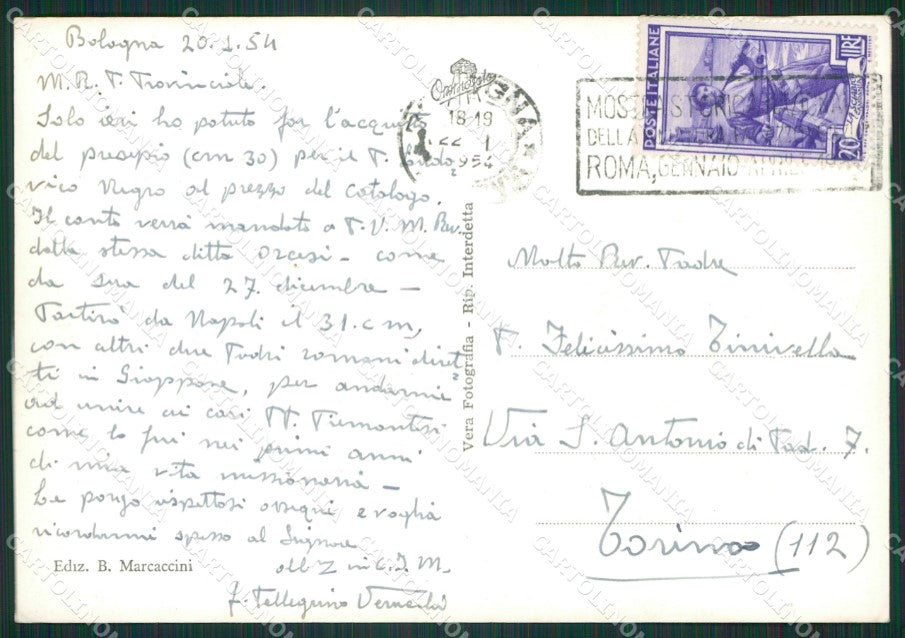 Bologna 20.1.54
M. R. P. Provinciale.
Solo ieri ho potuto far l'acquisto
del presepio (cm 30) per il P. Lodo
vico Negro al prezzo del Catalogo.
Il conto verrà mandato a P. V. M. Rev.
dalla stessa ditta - come
da sua del 27. dicembre -
Partirò da Napoli il 31. c m,
con altri due Padri romani diret
ti in Giappone, per andarmi
ad unire ai cari PP. Piemontesi
come lo fui nei primi anni
di mia vita missionaria -
Le porgo rispettosi ossequi e voglia
ricordarmi spesso al Signore
in C. J. M.
f. Pellegrino
Ediz. B. Marcaccini
Vera Fotografia - Rip. Interdetta
18-19
22 - 1
1954
POSTE ITALIANE
LIRE
20
MOSTRA STORIC
DELLA
ROMA, GENNAIO-APRILE
Molto Rev. Padre
P. Felicissimo Tinivella
Via S. Antonio di Pad. 7.
Torino (112)
CARTOLINOMANIA